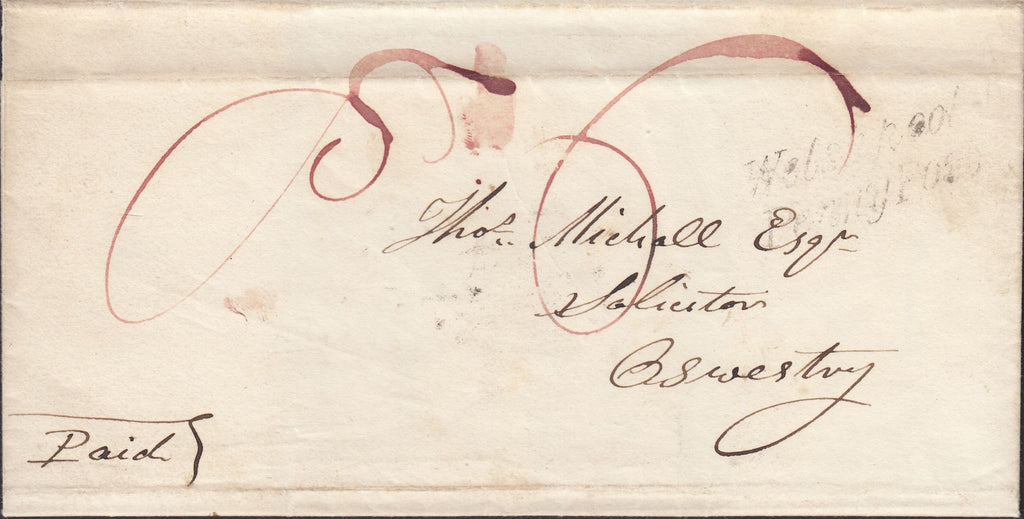 Welshpool
Penny Post
Thos. Michall Esqr
Solicitor
Oswestry
Paid